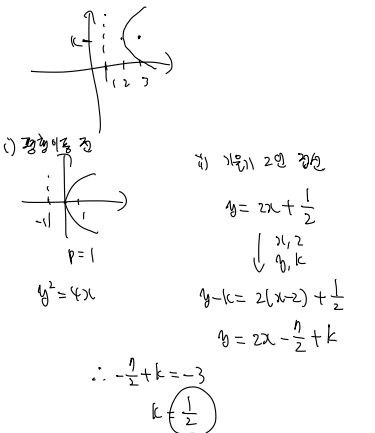 k
1 2 3
i) 평행이동 전
-1 1
p = 1
y² = 4x
ii) 기울기 2인 접선
y = 2x + 1/2
x, 2
y, k
y-k = 2(x-2) + 1/2
y = 2x - 7/2 + k
∴ -7/2 + k = -3
k = 1/2